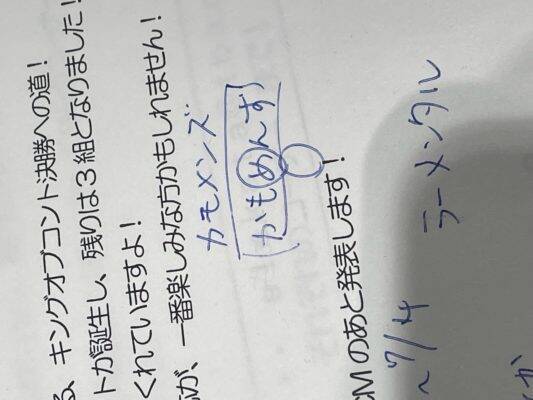 る、キングオブコント決勝への道！
トが誕生し、残りは3組となりました！
くれていますよ！
が、一番楽しみな方かもしれません！
カモメンズ
(かもめんず)
CMのあと発表します！
～7/4
ラーメンタル